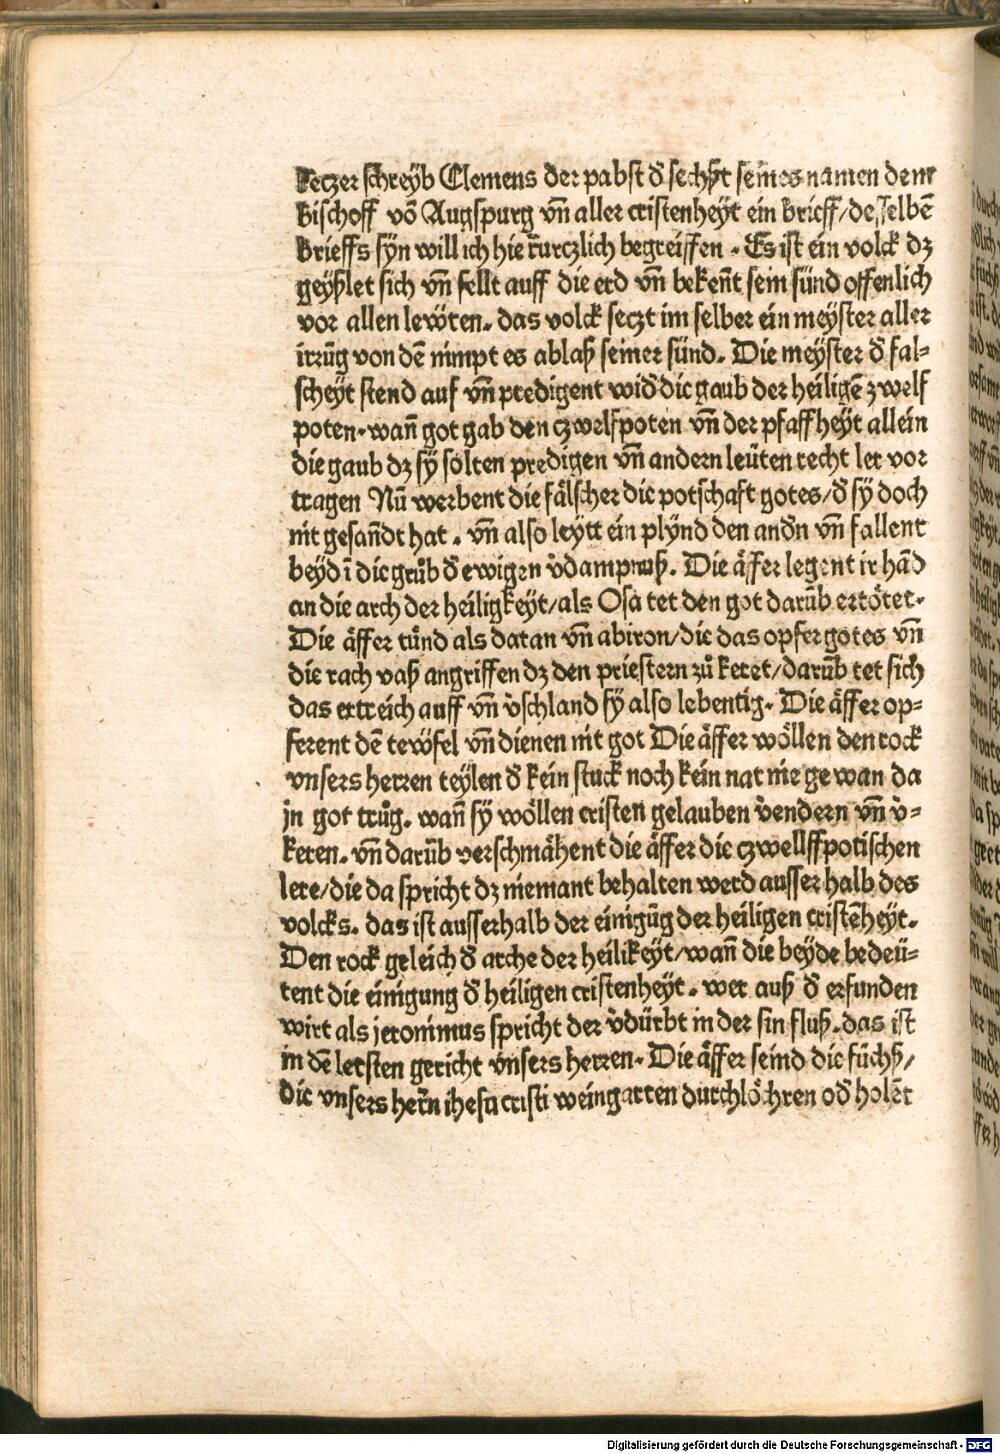 keczer schreyb Clemens der pabst d̕ sechßt seines namen dem
bischoff vō Augspurg vn̄ aller cristenheÿt ein brieff/desselbē
brieffs sÿn will ich hie kurczlich begreiffen. Es ist ein volck dz
geÿßlet sich vn̄ fellt auff die erd vn̄ beken̄t sein sünd offenlich
vor allen lewten. das volck seczt im selber ein meÿster aller
irrūg von dē nimpt es ablaß seiner sünd. Die meÿster d̕ fal-
scheÿt stend auf vn̄ predigent wid̕ die gaub der heiligē zwelf
poten. wan̄ got gab den czwelfpoten vn̄ der pfaffheÿt allein
die gaub dz sÿ solten predigen vn̄ andern leüten recht ler vor
tragen Nū werbent die fälscher die potschaft gotes/d̕ sÿ doch
nit gesan̄dt hat. vn̄ also leytt ein plÿnd den and̕n vn̄ fallent
beÿd ī die grůb d̕ ewigen v̕dampnuß. Die äffer legent ir hād
an die arch der heiligkeÿt/als Osa tet den got darūb ertötet.
Die äffer tůnd als datan vn̄ abiron/die das opfer gotes vn̄
die rach vaß angriffen dz den priestern zů keret/darūb tet sich
das ertreich auff vn̄ v̕schland sÿ also lebentig. Die äffer op-
ferent dē tewfel vn̄ dienen nit got Die äffer wöllen den rock
vnsers herren teÿlen d̕ kein stuck noch kein nat nie gewan da
jn got trůg. wan̄ sÿ wöllen cristen gelauben v̕endern vn̄ v̕-
keren. vn̄ darūb verschmähent die äffer die czwellffpotischen
lere/die da spricht dz niemant behalten werd ausser halb des
volcks. das ist ausserhalb der einigūg der heiligen cristēheÿt.
Den rock geleich d̕ arche der heilikeÿt/wan̄ die beyde bedeü-
tent die einigung d̕ heiligen cristenheÿt. wer auß d̕ erfunden
wirt als jeronimus spricht der v̕dürbt in der sin fluß. das ist
in dē letsten gericht vnsers herren. Die äffer seind die füchß/
die vnsers her̄n ihesu cristi weingarten durchlöchren od̕ holēr
Digitalisierung gefördert durch die Deutsche Forschungsgemeinschaft - DFG